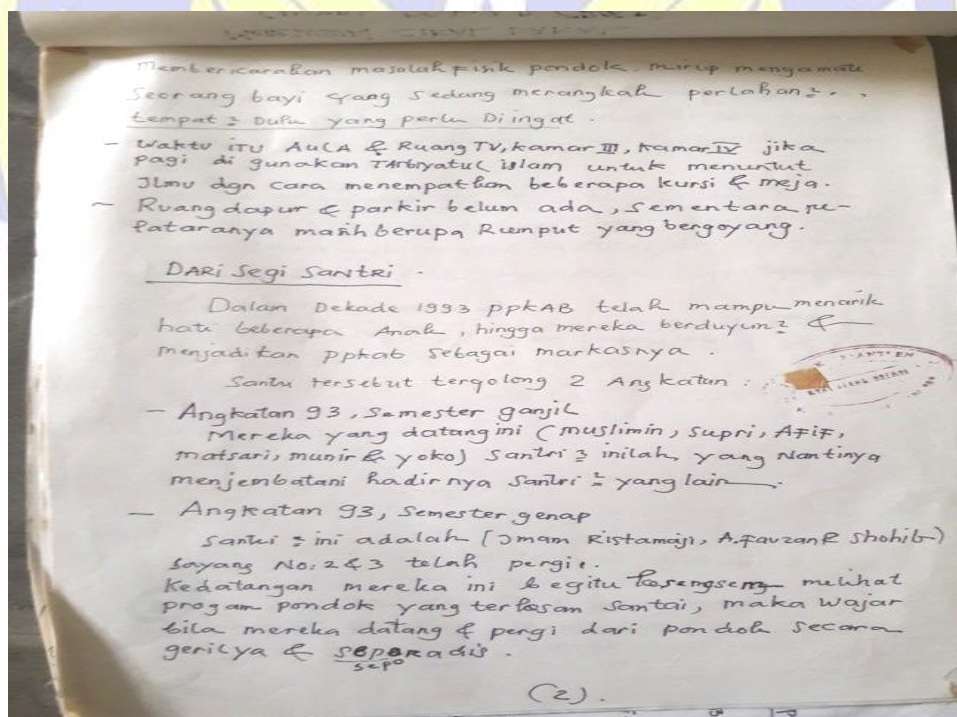 Membericarakan masalah Fisik pondok. mirip mengamati
Seorang bayi yang sedang merangkah perlahan².
tempat² Dulu yang perlu Di ingat.
- Waktu ITU AULA & Ruang TV, Kamar III, Kamar IV jika
pagi di gunakan TArbiyatul islam untuk menuntut
ILmu dgn cara menempatkan beberapa kursi & meja.
~ Ruang dapur & parkir belum ada, Sementara pe-
lataranya masih berupa Rumput yang bergoyang.
DARi Segi SantRi.
Dalam Dekade 1993 ppkAB telah mampu menarik
hati beberapa Anak, hingga mereka berduyun² &
menjadikan ppkab sebagai markasnya.
Santri tersebut tergolong 2 Angkatan :
- Angkatan 93, Semester ganjil
Mereka yang datang ini (muslimin, Supri, AFiF,
matsari, munir & yoko) Santri² inilah yang Nantinya
menjembatani hadirnya Santri² yang lain.
- Angkatan 93, Semester genap
Santri² ini adalah (Imam Ristamaji, A.Fauzan & Shohib)
Sayang No: 2 & 3 telah pergi.
Kedatangan mereka ini begitu melihat
progam pondok yang terkesan Santai, maka wajar
bila mereka datang & pergi dari pondok secara
gerilya &
sepo
(2).